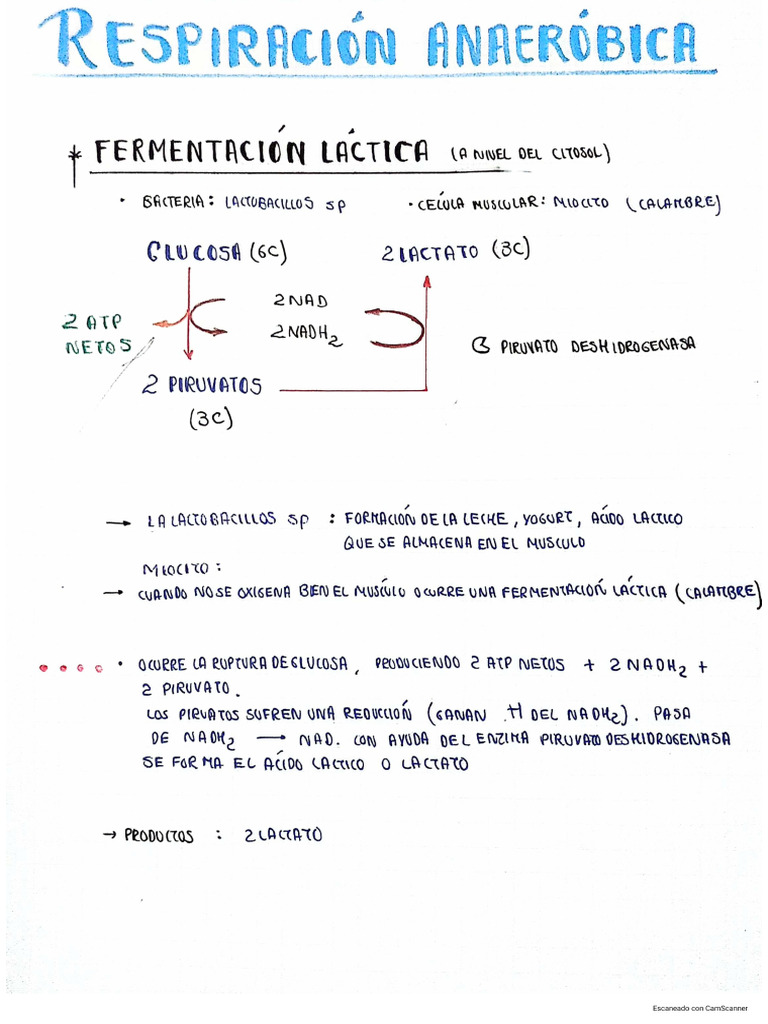 RESPIRACIÓN ANAERÓBICA
* FERMENTACIÓN LÁCTICA (A NIVEL DEL CITOSOL)
• BACTERIA: LACTOBACILLOS SP • CELÚLA MUSCULAR: MIOCITO (CALAMBRE)
GLUCOSA (6C) 2 LACTATO (3C)
2 NAD
2 ATP
NETOS
2 NADH2
PIRUVATO DESHIDROGENASA
2 PIRUVATOS
(3C)
→ LA LACTOBACILLOS SP : FORMACIÓN DE LA LECHE, YOGURT, ÁCIDO LACTICO
QUE SE ALMACENA EN EL MUSCULO
MIOCITO:
→ CUANDO NO SE OXIGENA BIEN EL MUSCÚLO OCURRE UNA FERMENTACIÓN LÁCTICA (CALAMBRE)
• OCURRE LA RUPTURA DE GLUCOSA, PRODUCIENDO 2 ATP NETOS + 2 NADH2 +
2 PIRUVATO.
LOS PIRUATOS SUFREN UNA REDUCCIÓN (GANAN H DEL NADH2). PASA
DE NADH2 → NAD. CON AYUDA DEL ENZIMA PIRUVATO DESHIDROGENASA
SE FORMA EL ÁCIDO LACTICO O LACTATO
→ PRODUCTOS : 2 LACTATO
Escaneado con CamScanner